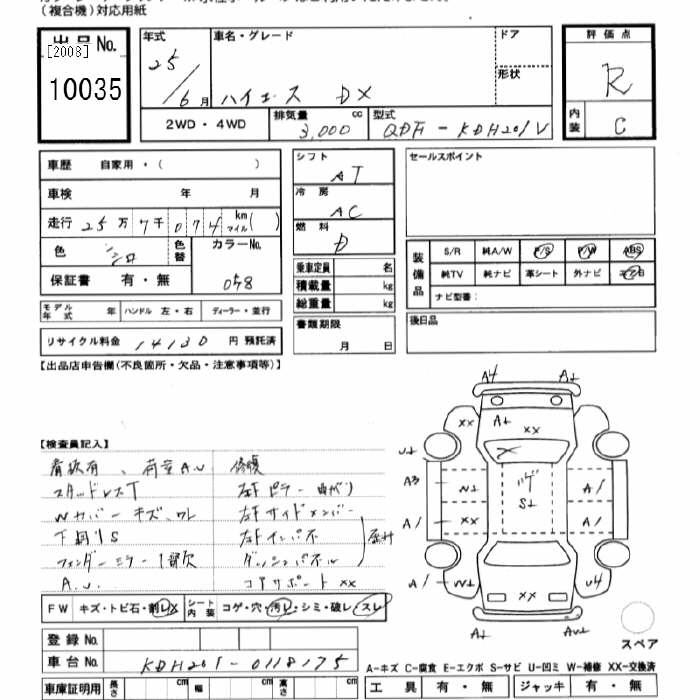 （複合機）対応用紙
出品No. 年式 車名・グレード ドア 評価点
[2008] 25 形状 R
10035 6月 ハイエース DX
2WD・4WD 排気量 3,000 cc 型式 QDF-KDH201V 内装 C
車歴 自家用・（ ） シフト AT セールスポイント
車検 年 月 冷房 AC
走行 25万7千074 km マイル( ) 燃料 D
色 シロ 色替 カラーNo. 058
保証書 有・無
装備品 S/R 純A/W P/S P/W ABS
純TV 純ナビ 革シート 外ナビ
ナビ型番：
乗車定員 名
積載量 kg
総重量 kg
モデル年式 年 ハンドル 左・右 ディーラー・並行
書類期限 月 日
後日品
リサイクル料金 14130 円 預託済
【出品店申告欄(不良箇所・欠品・注意事項等)】
【検査員記入】
看板有、荷室A.U 修復
スタッドレスT 左Fピラー 曲がり
Wカバー キズ、ワレ 左Fサイドメンバー
下廻りS 左Fインパネ
フェンダーミラー1ケ欠 ダッシュパネル
A.U. コアサポートXX
A4 A1
XX A1 XX
U1
A3 W1 ハゲ S1 A1
A1 XX A1
A1 W1 XX U4
A1 AU1
スペア
FW キズ・トビ石・割レX シート内装 コゲ・穴・汚レ・シミ・破レ・スレ
登録No.
車台No. KDH201-0118175
A-キズ C-腐食 E-エクボ S-サビ U-凹ミ W-補修 XX-交換済
車庫証明用 長さ cm 幅 cm 高さ cm 工具 有・無 ジャッキ 有・無